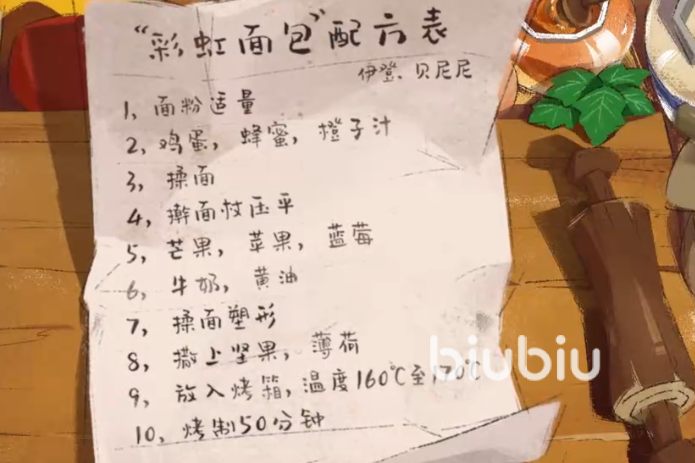 “彩虹面包”配方表
伊登、贝尼尼
1, 面粉适量
2, 鸡蛋, 蜂蜜, 橙子汁
3, 揉面
4, 擀面杖压平
5, 芒果, 苹果, 蓝莓
6, 牛奶, 黄油
7, 揉面塑形
8, 撒上坚果, 薄荷
9, 放入烤箱, 温度160℃至170℃
10, 烤制50分钟
biubiu